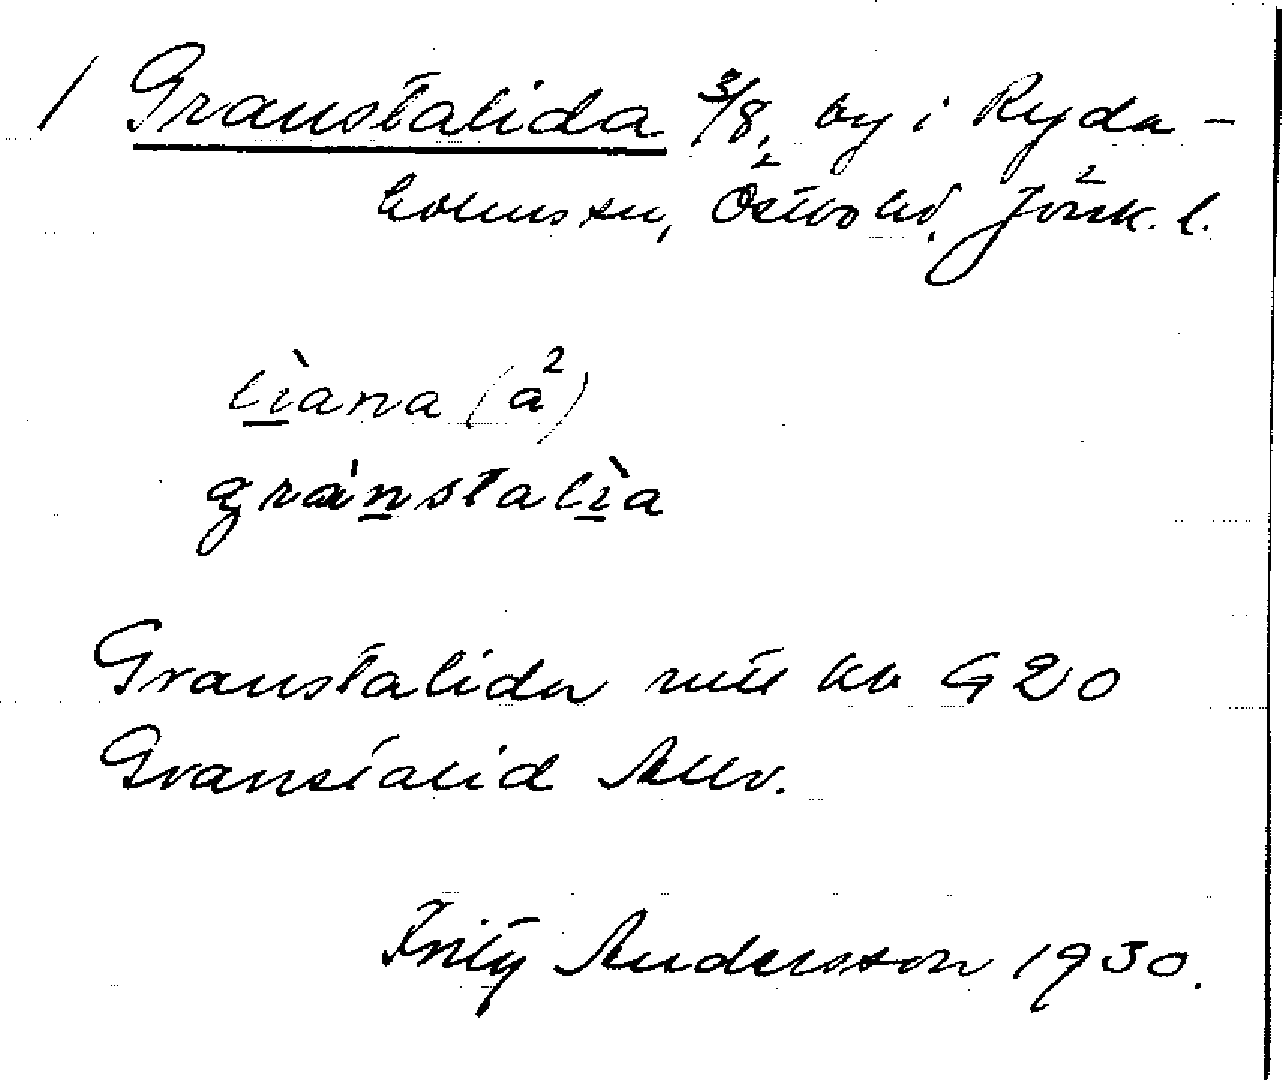 1 Granstalida 3/8, by i Ryda-
holms sn, Östbo hd, Jönk. l.
lìana (a²)
gránstalìa
Granstalida rätt kb G 20
Granstalid Allv.
Fritz Andersson 1930.